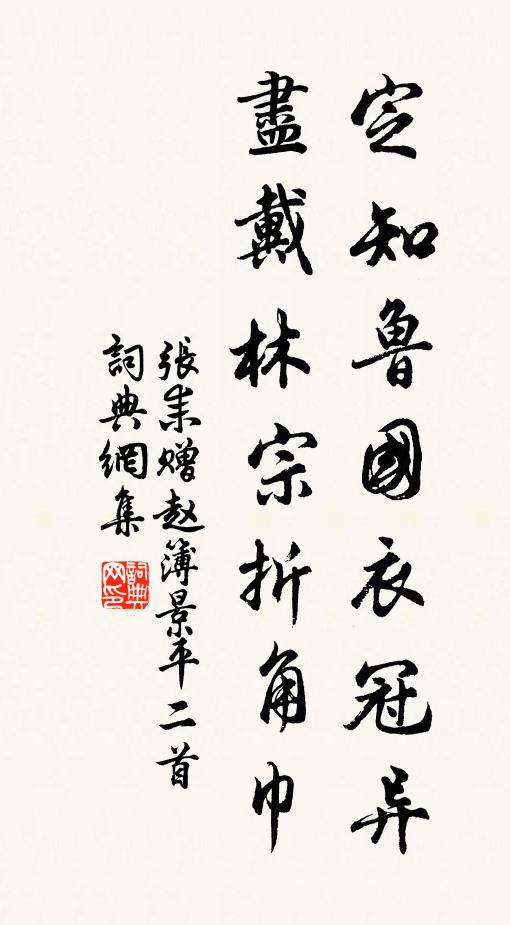 定知魯國衣冠异
盡戴林宗折角巾
張耒赠赵簿景平二首
詞典網集
詞典网印